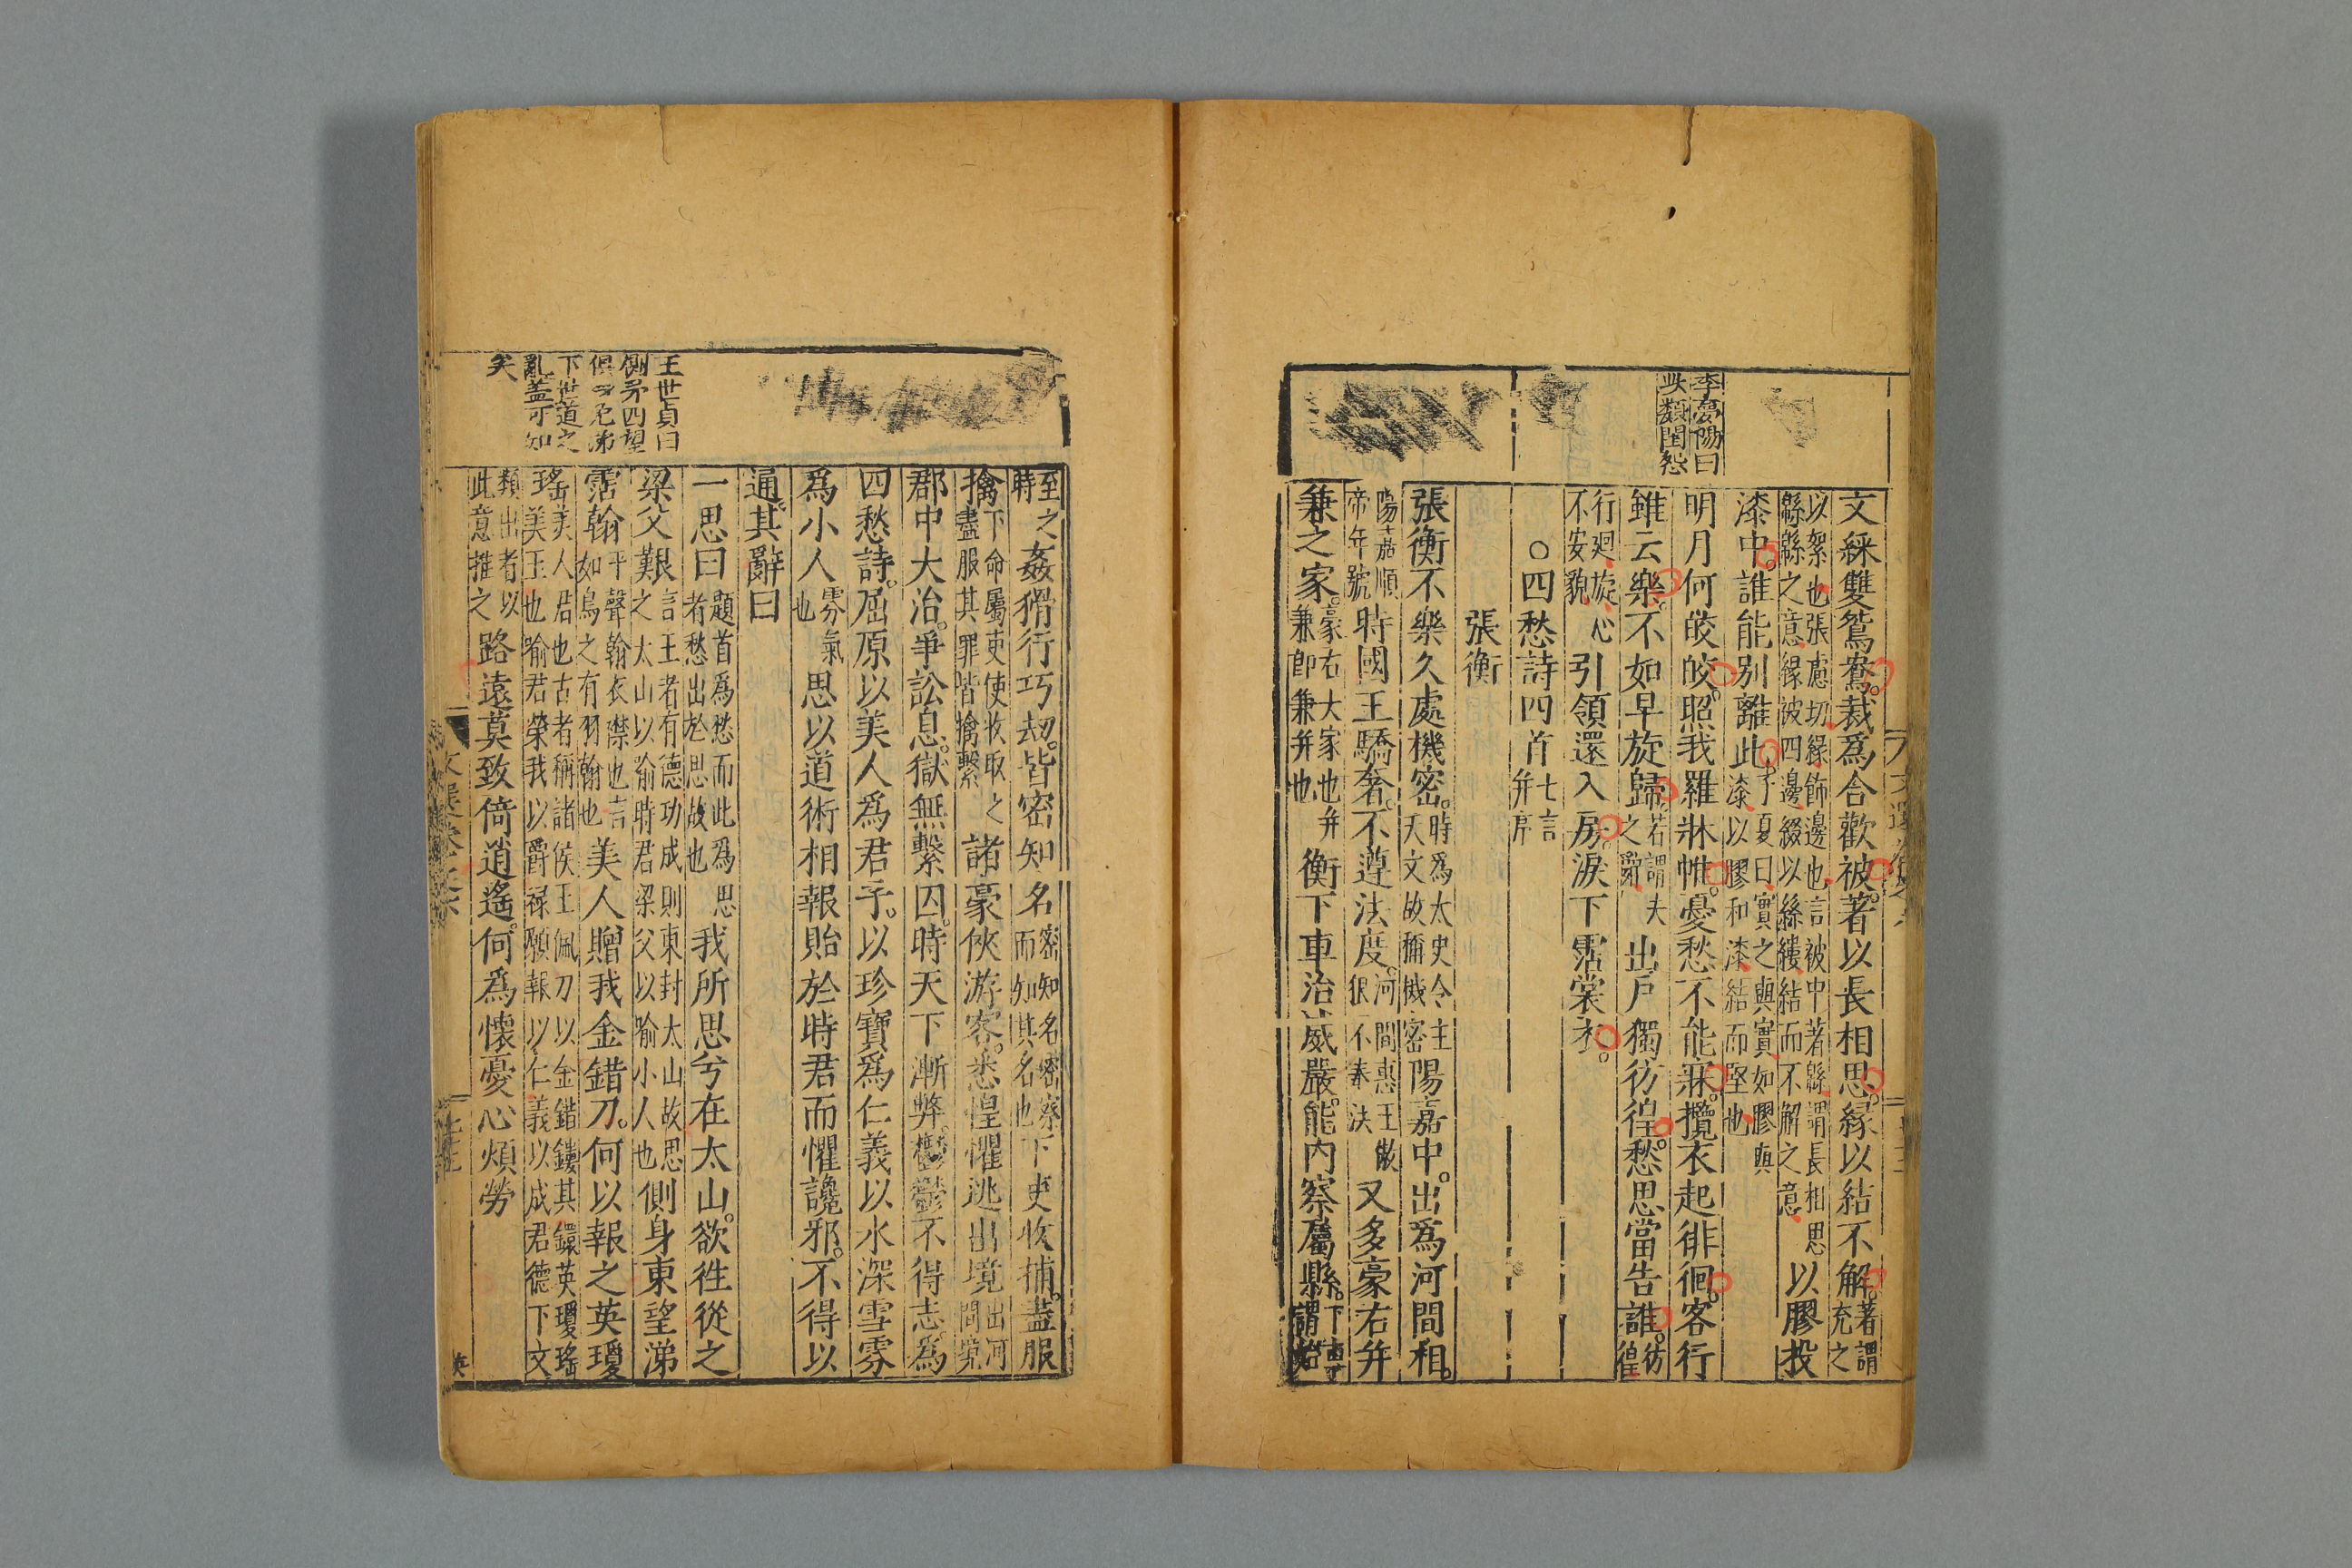 李夢陽曰
此類閨怨
文綵雙鴛鴦。裁爲合歡被。著以長相思。緣以結不解。著謂充之
以絮也張慮切緣飾邊也言被中著緜謂長相思緜緜之意緣被四邊綴以絲縷結而不解之意以膠投
漆中。誰能別離此。子夏曰實之與實如膠與漆以膠和漆結而堅也
明月何皎皎。照我羅牀帷。憂愁不能寐。攬衣起徘徊。客行
雖云樂。不如早旋歸。若謂夫之辭出戶獨彷徨。愁思當告誰。彷徨
行廻旋心不安貌引領還入房。淚下霑裳衣。
○四愁詩四首七言并序
張衡
張衡不樂久處機密。時爲太史令主天文故稱機密陽嘉中。出爲河間相。
陽嘉順帝年號時國王驕奢。不遵法度。河間惠王傲狠不奉法又多豪右并
兼之家。豪右大家也并兼卽兼并也衡下車治威嚴。能内察屬縣。下車謂始
王世貞曰
側身四望
俱不免涕
下世道之
亂蓋可知
矣
至之時姦猾行巧刼。皆密知名密知名密察而知其名也下吏收捕。盡服
擒下命屬吏使收取之盡服其罪皆擒繫諸豪俠游客。悉惶懼逃出境出河間界
郡中大治。爭訟息。獄無繫囚。時天下漸弊。鬱鬱不得志。爲
四愁詩。屈原以美人爲君子。以珍寶爲仁義以水深雪雰
爲小人雰氣也思以道術相報貽於時君而懼讒邪。不得以
通。其辭曰
一思曰題首爲愁而此爲思者愁出於思故也我所思兮在太山。欲徃從之
梁父艱言王者有德功成則東封太山故思之太山以喻時君梁父以喻小人也側身東望涕
霑翰平聲翰衣襟也言如鳥之有羽翰也美人贈我金錯刀。何以報之英瓊
瑤美人君也古者稱諸侯王佩刀以金錯鏤其鐶英瓊瑤美玉也喻君榮我以爵祿願報以仁義以成君德下文
類出者以此意推之路遠莫致倚逍遙。何爲懷憂心煩勞